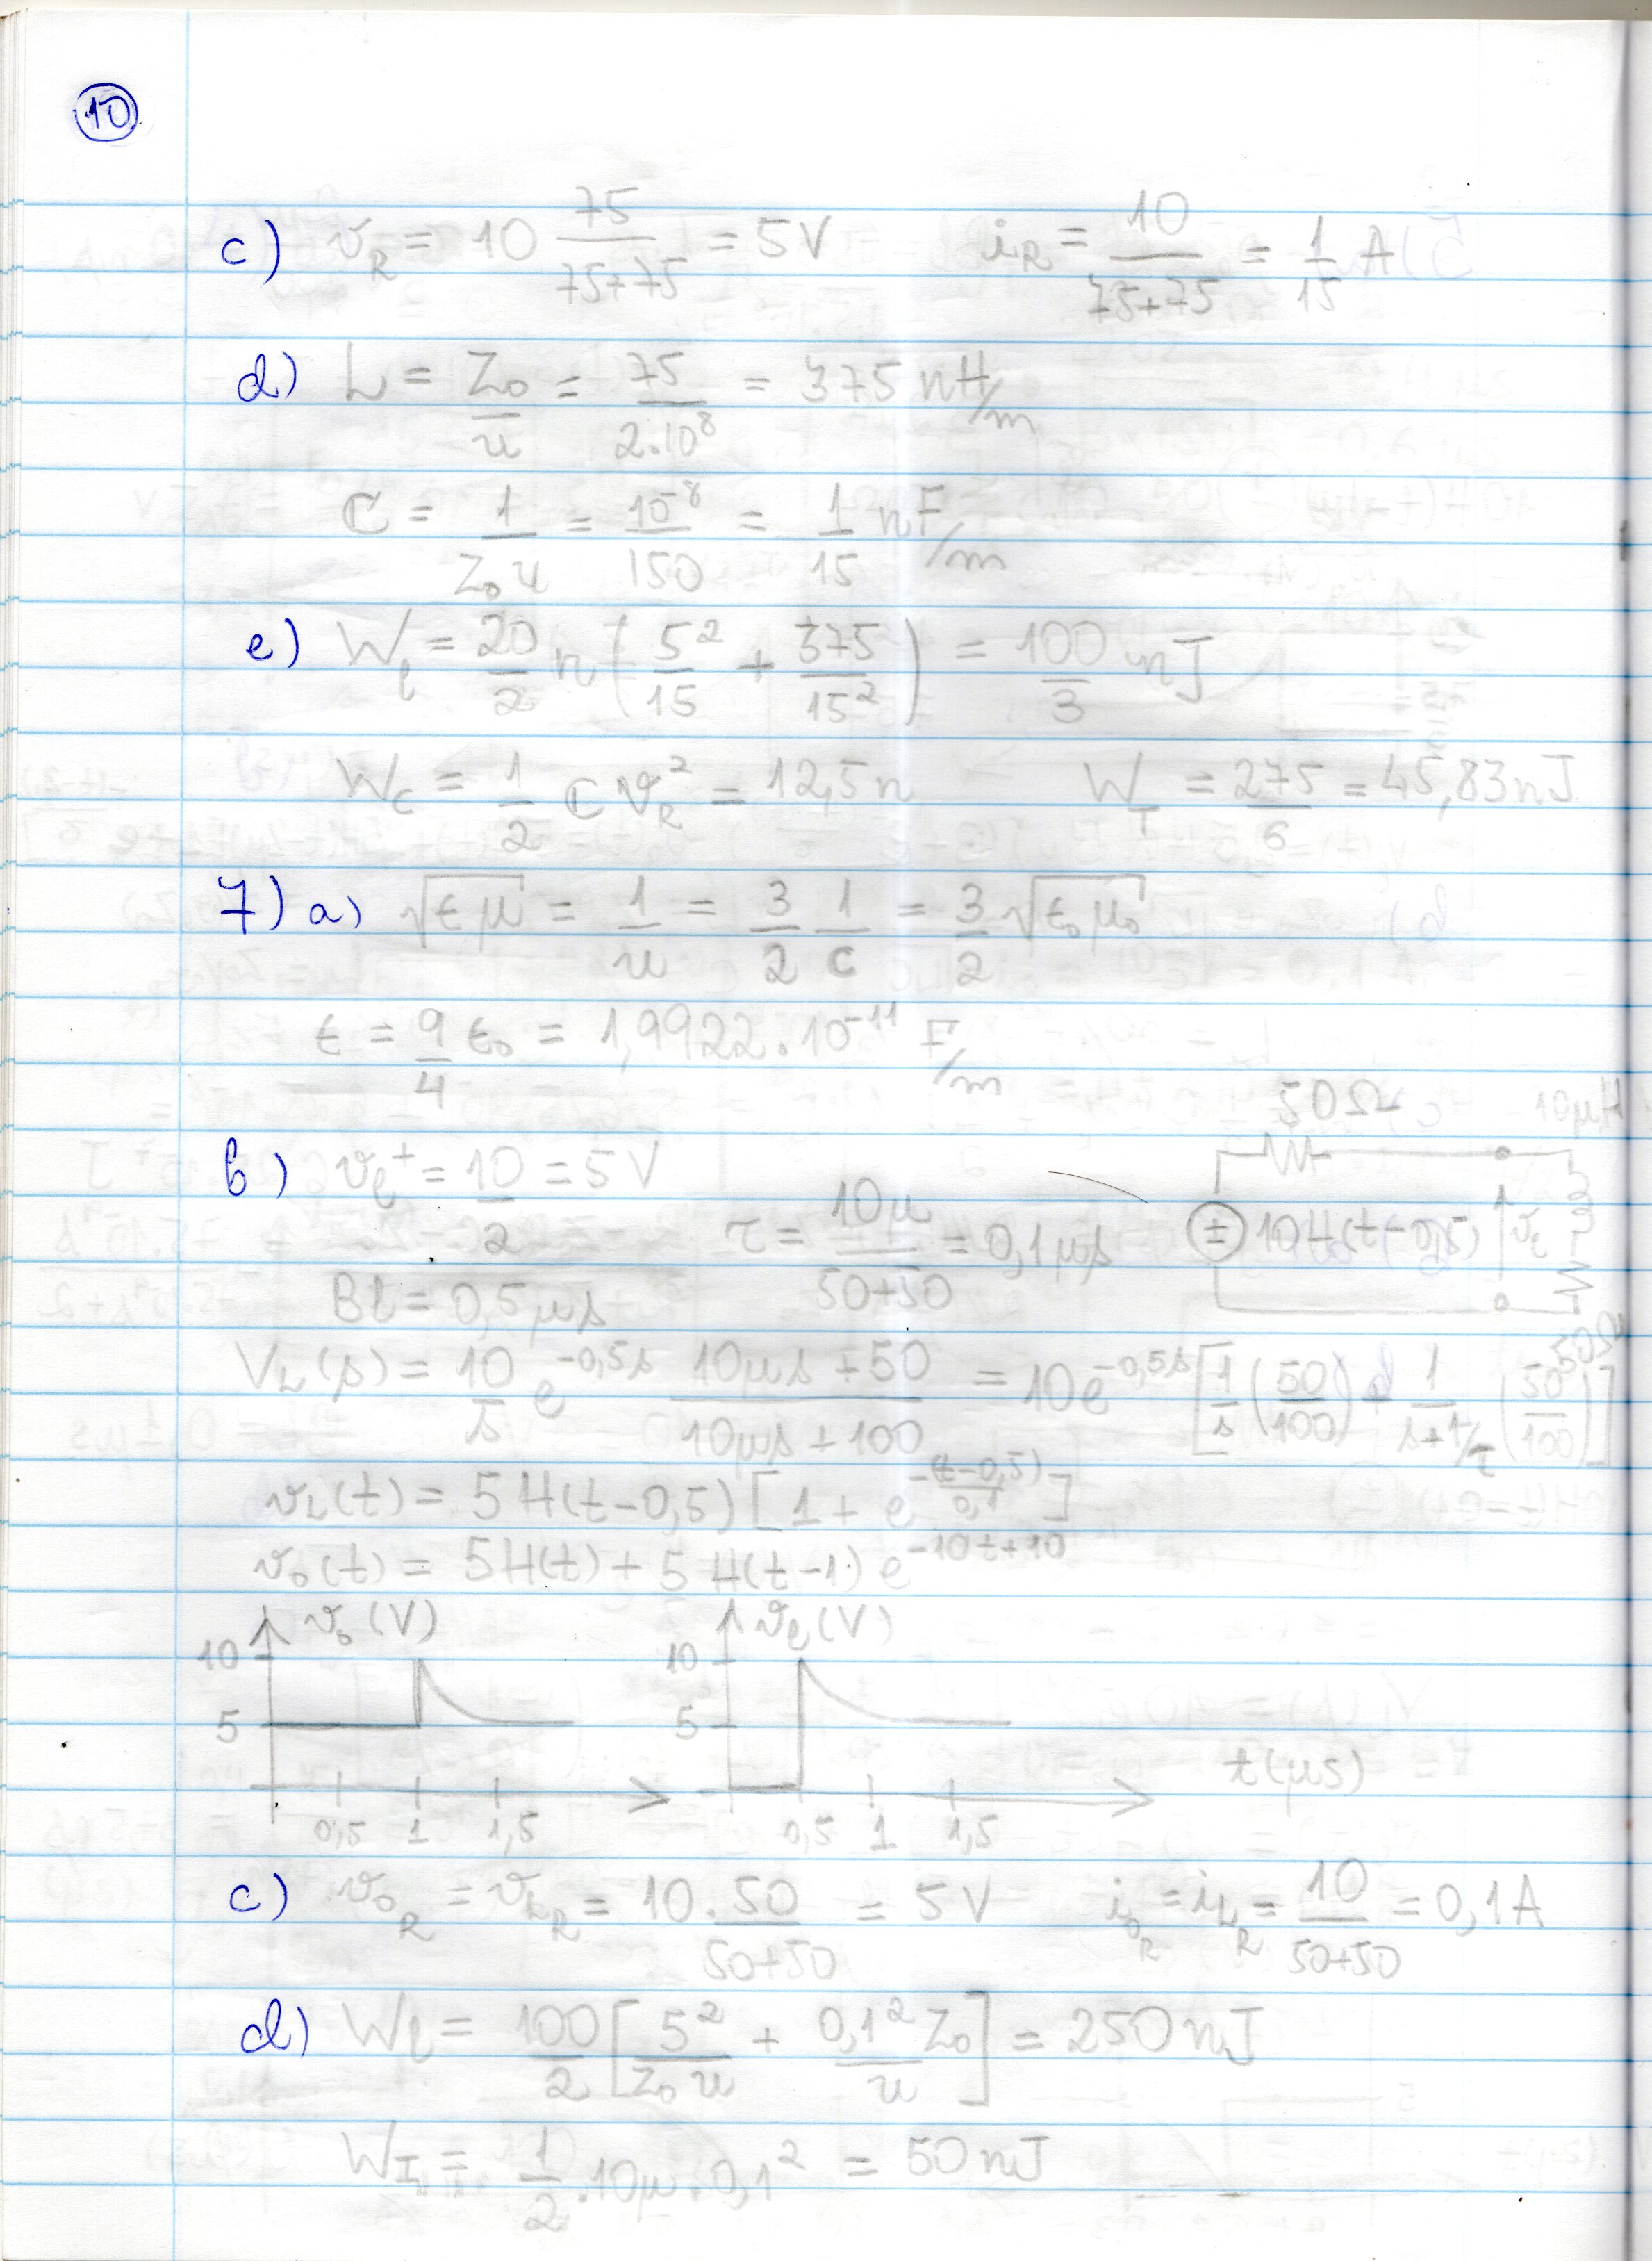 10
c) v_R = 10 75/(75+75) = 5V i_R = 10/(75+75) = 1/15 A
d) L = Z₀/u = 75/(2.10⁸) = 375 nH/m
C = 1/(Z₀u) = 10⁻⁸/150 = 1/15 nF/m
e) W_l = 20/2 n (5²/15 + 375/15²) = 100/3 nJ
W_C = 1/2 C v_R² = 12,5n W_T = 275/6 = 45,83nJ
7) a) √(εμ) = 1/u = 3/2 1/c = 3/2 √(ε₀μ₀)
ε = 9/4 ε₀ = 1,9922.10⁻¹¹ F/m
50Ω 10μH
b) v_l⁺ = 10/2 = 5V τ = 10μ/(50+50) = 0,1μs ± 10H(t-0,5) v_l
Bl = 0,5μs 50Ω
V_L(s) = 10/s e^(-0,5s) (10μs+50)/(10μs+100) = 10e^(-0,5s) [1/s (50/100) + 1/(s+1/τ) (50/100)]
v_L(t) = 5H(t-0,5) [1 + e^(-(t-0,5)/0,1)]
v₀(t) = 5H(t) + 5H(t-1) e^(-10t+10)
v₀(V) v_l(V)
10 10
5 5
t(μs)
0,5 1 1,5 0,5 1 1,5
c) v₀_R = v_L_R = 10.50/(50+50) = 5V i₀_R = i_L_R = 10/(50+50) = 0,1A
d) W_l = 100/2 [5²/(Z₀u) + 0,1²Z₀/u] = 250nJ
W_I = 1/2 .10μ.0,1² = 50nJ